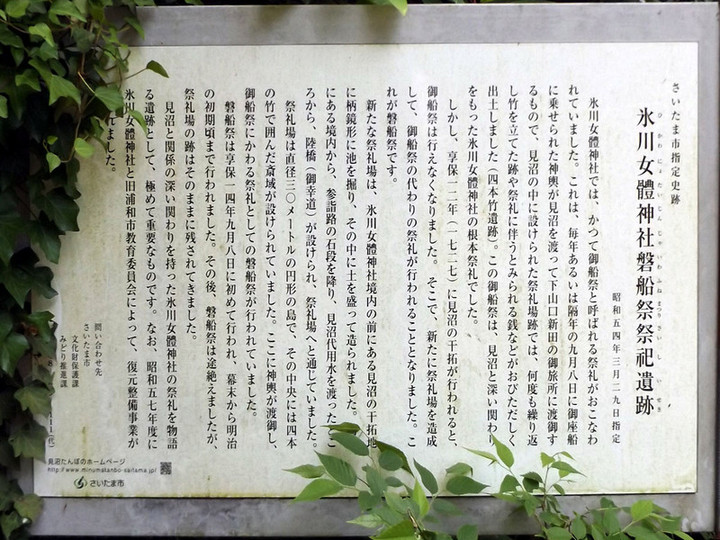 さいたま市指定史跡
氷川女體神社磐船祭祭祀遺跡
ひかわにょたいじんじゃいわふねまつりさいしいせき
昭和五四年三月二九日指定
氷川女體神社では、かつて御船祭と呼ばれる祭礼がおこなわ
れていました。これは、毎年あるいは隔年の九月八日に御座船
に乗せられた神輿が見沼を渡って下山口新田の御旅所に渡御す
るもので、見沼の中に設けられた祭礼場跡では、何度も繰り返
し竹を立てた跡や祭礼に伴うとみられる銭などがおびただしく
出土しました（四本竹遺跡）。この御船祭は、見沼と深い関わり
をもった氷川女體神社の根本祭礼でした。
しかし、享保一二年（一七二七）に見沼の干拓が行われると、
御船祭は行えなくなりました。そこで、新たに祭礼場を造成
して、御船祭の代わりの祭礼が行われることとなりました。こ
れが磐船祭です。
新たな祭礼場は、氷川女體神社境内の前にある見沼の干拓地
に柄鏡形に池を掘り、その中に土を盛って造られました。
にある境内から、参詣路の石段を降り、見沼代用水を渡ったこ
ろから、陸橋（御幸道）が設けられ、祭礼場へと通じていました。
祭礼場は直径三〇メートルの円形の島で、その中央には四本
の竹で囲んだ斎域が設けられていました。ここに神輿が渡御し、
御船祭にかわる祭礼としての磐船祭が行われていました。
磐船祭は享保一四年九月八日に初めて行われ、幕末から明治
の初期頃まで行われました。その後、磐船祭は途絶えましたが、
祭礼場の跡はそのままに残されてきました。
見沼と関係の深い関わりを持った氷川女體神社の祭礼を物語
る遺跡として、極めて重要なものです。なお、昭和五七年度に
氷川女體神社と旧浦和市教育委員会によって、復元整備事業が
れました。
問い合わせ先
さいたま市
文化財保護課
みどり推進課
見沼たんぼのホームページ
http://www.minumatanbo-saitama.jp/
さいたま市